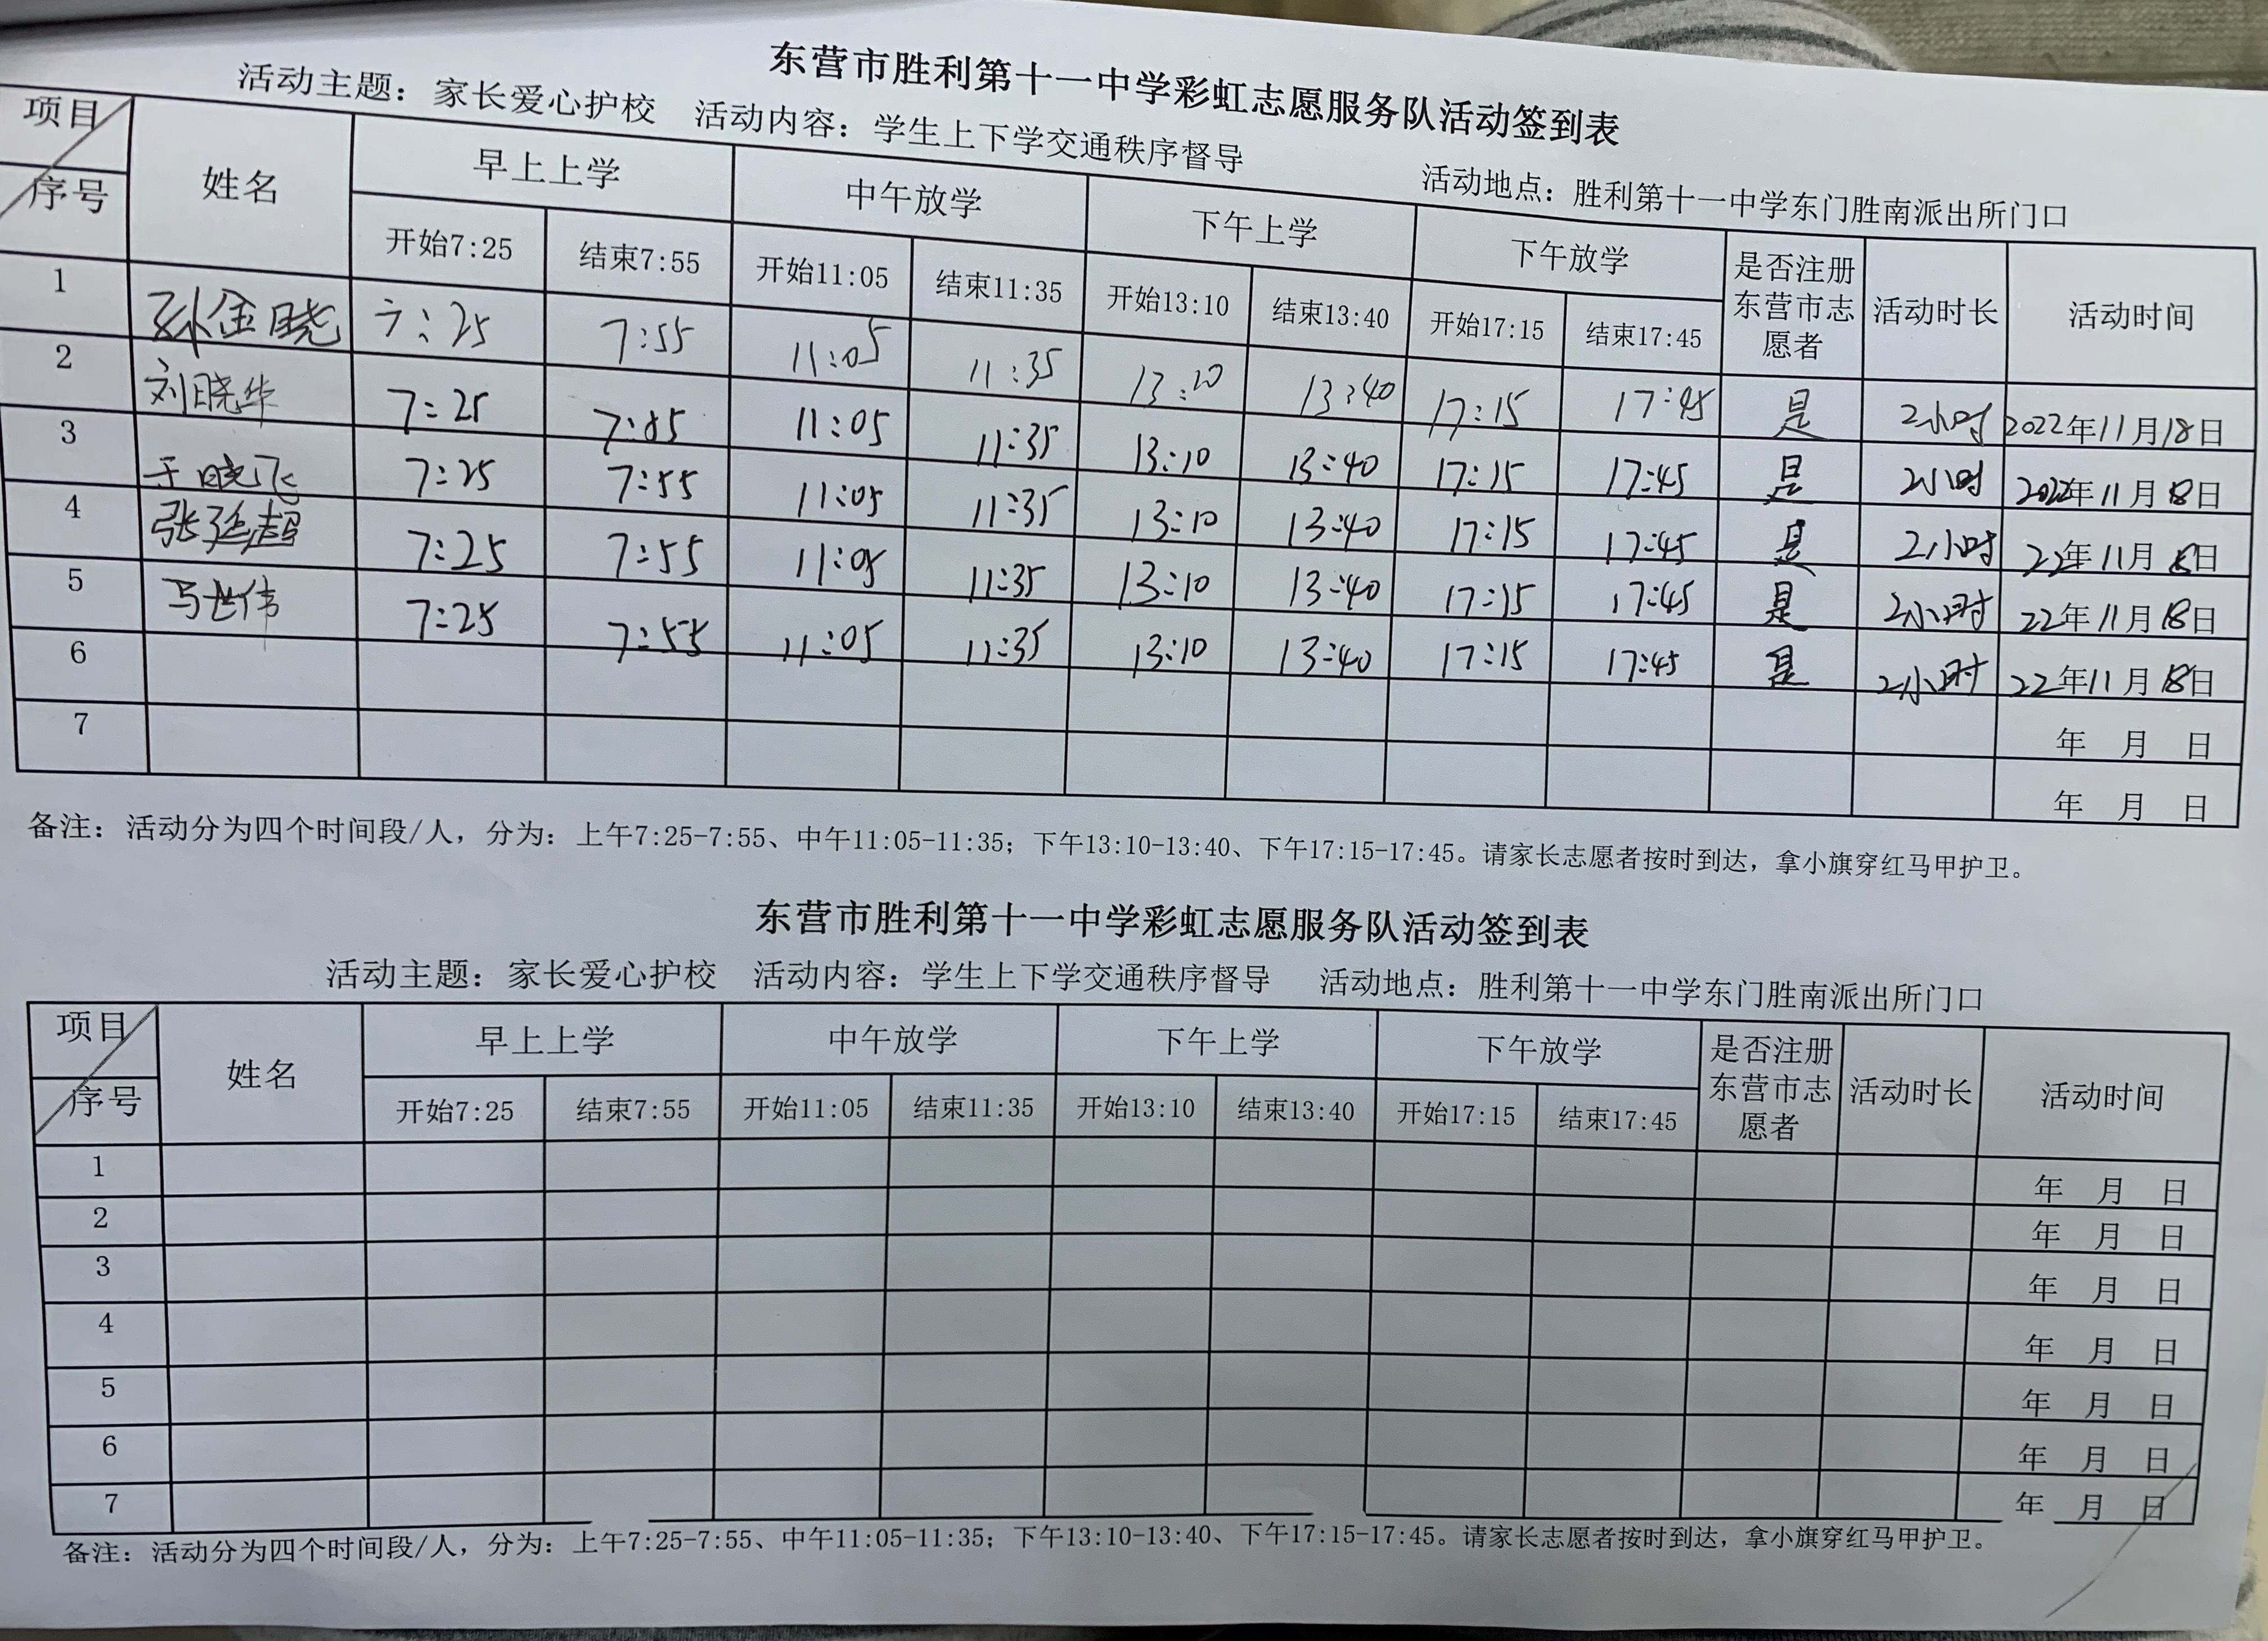 东营市胜利第十一中学彩虹志愿服务队活动签到表
活动主题：家长爱心护校 活动内容：学生上下学交通秩序督导 活动地点：胜利第十一中学东门胜南派出所门口
项目 序号 姓名 早上上学 中午放学 下午上学 下午放学 是否注册东营市志愿者 活动时长 活动时间
开始7:25 结束7:55 开始11:05 结束11:35 开始13:10 结束13:40 开始17:15 结束17:45
1 孙金晓 7:25 7:55 11:05 11:35 13:10 13:40 17:15 17:45 是 2小时 2022年11月18日
2 刘晓华 7:25 7:55 11:05 11:35 13:10 13:40 17:15 17:45 是 2小时 2022年11月18日
3 于晓飞 7:25 7:55 11:05 11:35 13:10 13:40 17:15 17:45 是 2小时 22年11月18日
4 张延超 7:25 7:55 11:05 11:35 13:10 13:40 17:15 17:45 是 2小时 22年11月18日
5 马世伟 7:25 7:55 11:05 11:35 13:10 13:40 17:15 17:45 是 2小时 22年11月18日
6 年 月 日
7 年 月 日
备注：活动分为四个时间段/人，分为：上午7:25-7:55、中午11:05-11:35；下午13:10-13:40、下午17:15-17:45。请家长志愿者按时到达，拿小旗穿红马甲护卫。
东营市胜利第十一中学彩虹志愿服务队活动签到表
活动主题：家长爱心护校 活动内容：学生上下学交通秩序督导 活动地点：胜利第十一中学东门胜南派出所门口
项目 序号 姓名 早上上学 中午放学 下午上学 下午放学 是否注册东营市志愿者 活动时长 活动时间
开始7:25 结束7:55 开始11:05 结束11:35 开始13:10 结束13:40 开始17:15 结束17:45
1 年 月 日
2 年 月 日
3 年 月 日
4 年 月 日
5 年 月 日
6 年 月 日
7 年 月 日
备注：活动分为四个时间段/人，分为：上午7:25-7:55、中午11:05-11:35；下午13:10-13:40、下午17:15-17:45。请家长志愿者按时到达，拿小旗穿红马甲护卫。